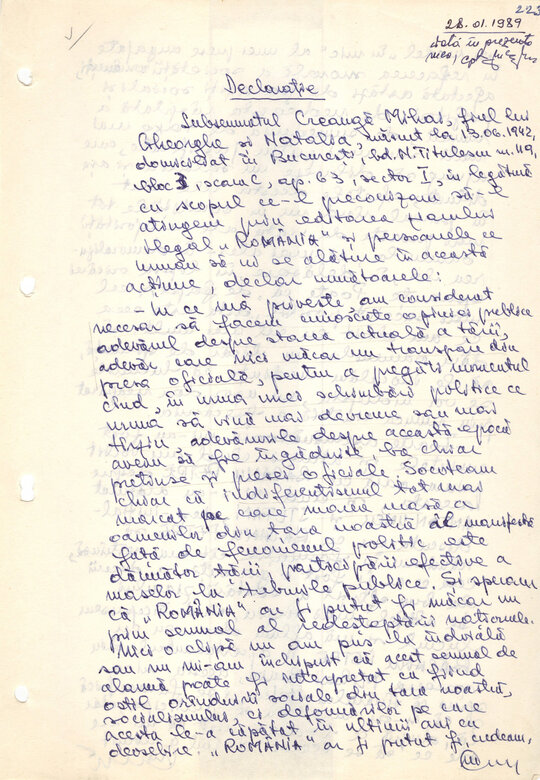 223
28.01.1989
dată în prezența
mea,
Declarație
Subsemnatul Creangă Mihai, fiul lui
Gheorghe și Natalia, născut la 13.06.1942,
domiciliat în București, bd. N. Titulescu nr. 119,
bloc 3, scara C, ap. 63, sector 1, în legătură
cu scopul ce-l preconizam să-l
atingem prin editarea ziarului
ilegal „ROMÂNIA" și persoanele ce
urmau să ni se alăture în această
acțiune, declar următoarele:
– În ce mă privește, am considerat
necesar să facem cunoscute opiniei publice
adevărul despre starea actuală a țării,
adevăr care nici măcar nu transpare din
presa oficială, pentru a pregăti momentul
când, în urma unei schimbări politice ce
urma să vină mai devreme sau mai
târziu, adevărurile despre această epocă
aveau să fie îngăduite, ba chiar
pretinse și presei oficiale. Socoteam
chiar că indiferentismul tot mai
marcat pe care marea masă a
oamenilor din țara noastră îl manifestă
față de fenomenul politic este
dăunător țării, participării efective a
maselor la treburile publice. Și speram
că „ROMÂNIA" ar fi putut fi măcar un
prim semnal al redeșteptării naționale.
Nici o clipă nu am pus la îndoială
sau nu mi-am închipuit că acest semnal de
alarmă poate fi interpretat ca fiind
ostil orânduirii sociale din țara noastră,
socialismului, ci deformărilor pe care
acesta le-a căpătat în ultimii ani cu
deosebire. „ROMÂNIA" ar fi putut fi, credeam,